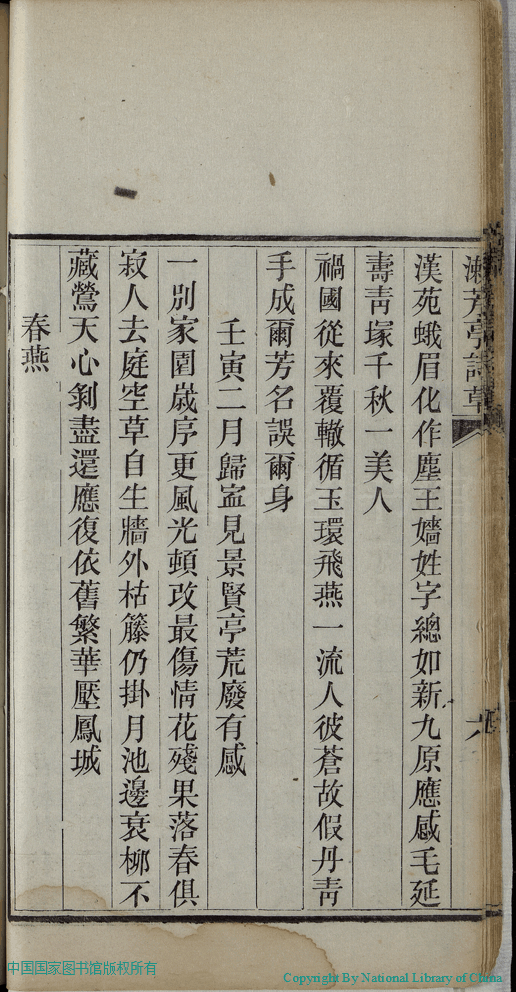 漱芳亭詩草
六
漢苑蛾眉化作塵王嬙姓字總如新九原應感毛延
壽靑塚千秋一美人
禍國從來覆轍循玉環飛燕一流人彼蒼故假丹靑
手成爾芳名誤爾身
壬寅二月歸寍見景賢亭荒廢有感
一別家園歲序更風光頓改最傷情花殘果落春俱
寂人去庭空草自生牆外枯籐仍掛月池邊衰柳不
藏鶯天心剝盡還應復依舊繁華壓鳳城
春燕
中国国家图书馆版权所有
Copyright By National Library of China